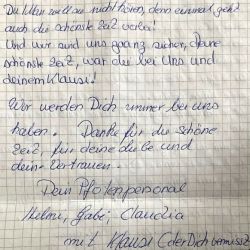 Du Uhr will sie nicht hören, denn einmal geht
auch die schönste Zeit vorbei!
Und wir sind uns ganz sicher, Deine
schönste Zeit, war die bei Uns und
deinem Klausi!
Wir werden Dich immer bei uns
haben. Danke für die schöne
Zeit, für deine Liebe und
dein Vertrauen
Dein Pfotenpersonal
Helmi, Gabi, Claudia
mit Klausi (der Dich vermisst